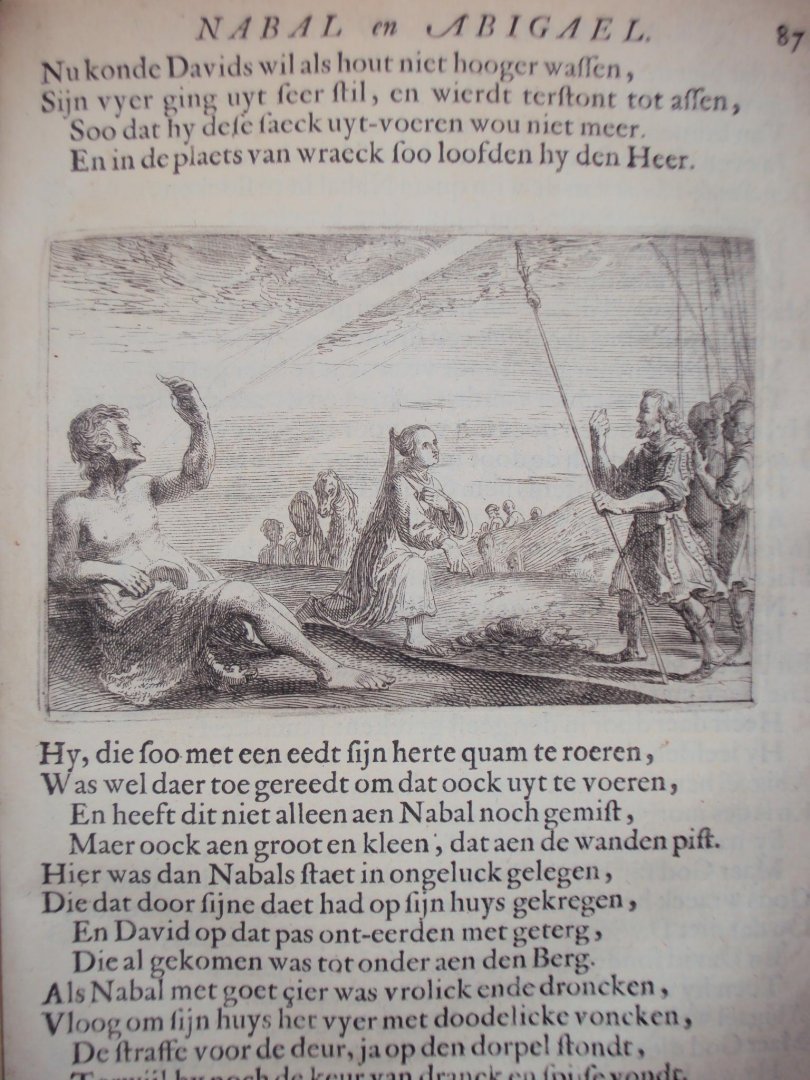 NABAL en ABIGAEL. 87
Nu konde Davids wil als hout niet hooger waſſen,
Sijn vyer ging uyt ſeer ſtil, en wierdt terſtont tot aſſen,
Soo dat hy deſe ſaeck uyt-voeren wou niet meer.
En in de plaets van wraeck ſoo loofden hy den Heer.
Hy, die ſoo met een eedt ſijn herte quam te roeren,
Was wel daer toe gereedt om dat oock uyt te voeren,
En heeft dit niet alleen aen Nabal noch gemiſt,
Maer oock aen groot en kleen, dat aen de wanden piſt.
Hier was dan Nabals ſtaet in ongeluck gelegen,
Die dat door ſijne daet had op ſijn huys gekregen,
En David op dat pas ont-eerden met geterg,
Die al gekomen was tot onder aen den Berg.
Als Nabal met goet çier was vrolick ende droncken,
Vloog om ſijn huys het vyer met doodelicke voncken,
De ſtraffe voor de deur, ja op den dorpel ſtondt,
Terwijl hy noch de keur van dranck en ſpijſe vondt.